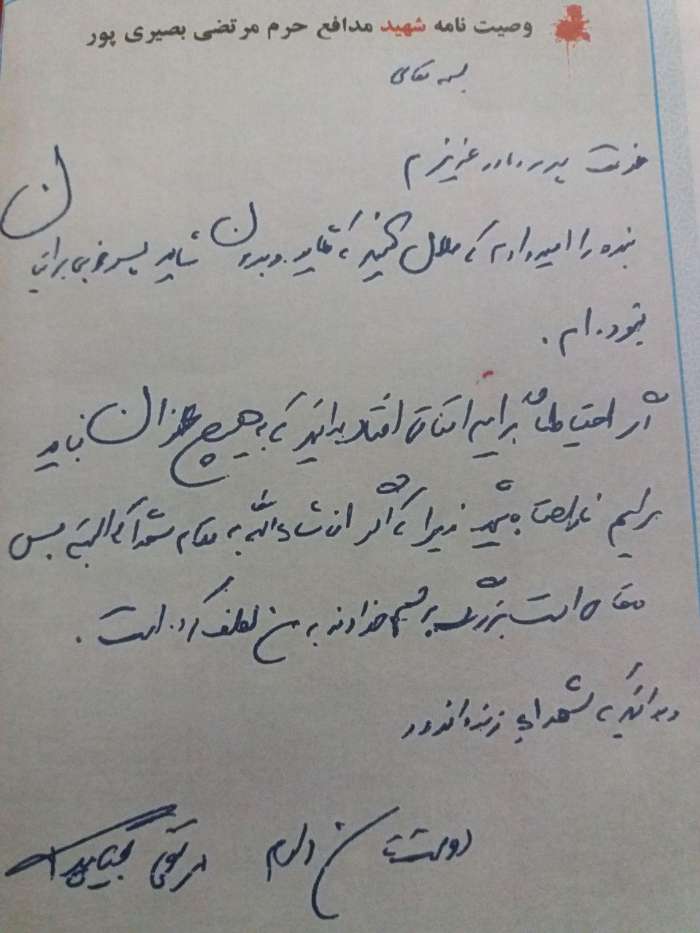 وصیت نامه شهید مدافع حرم مرتضی بصیری پور
بسمه تعالی
خدمت پدر و مادر عزیزم
بنده را امیدوارم که حلال کنید که شاید پسر خوبی برایتان
نبوده ام.
اگر احتیاطاً برایم اتفاقی افتاد بدانید که به هیچ عنوان نباید
برایم ناراحت باشید زیرا که اگر ان شاءالله به مقام شهدا که البته بس
مقام است بزرگ برسم خداوند به من لطف کرده است.
و بدانید که شهدا زنده اند و
دوستتان دارم مرتضی